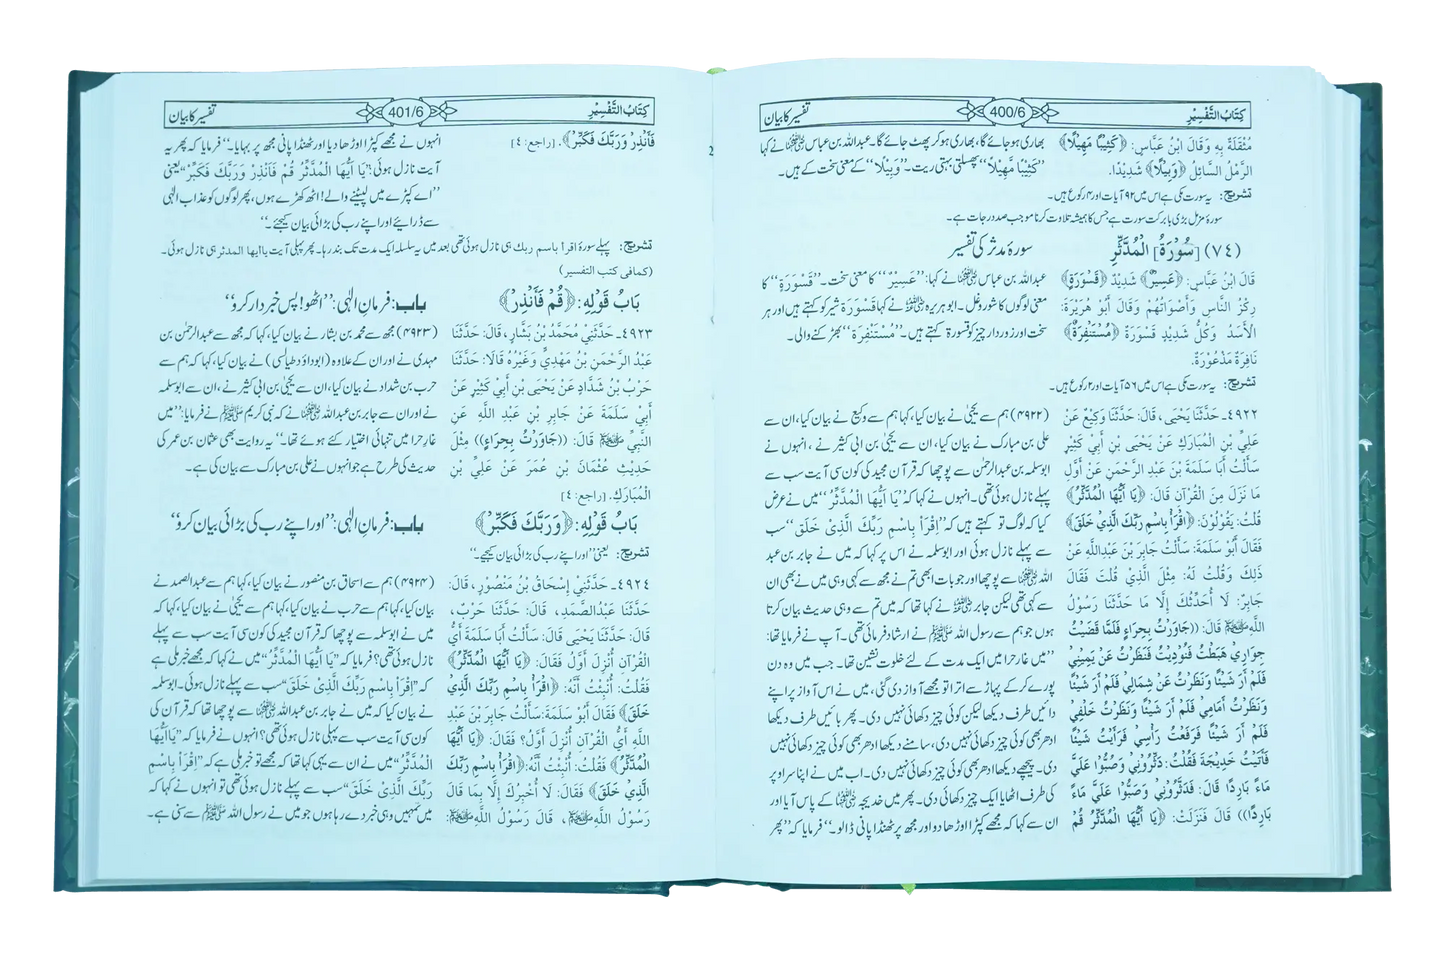 كِتَابُ التَّفْسِيْرِ
400/6
تفسیر کا بیان
مُثْقَلَةٌ بِهِ وَقَالَ ابْنُ عَبَّاسٍ: ﴿كَثِيْبًا مَهِيْلًا﴾
الرَّمْلُ السَّائِلُ ﴿وَبِيْلًا﴾ شَدِيْدًا.
بھاری ہو جائے گا، بھاری ہو کر پھٹ جائے گا۔ عبداللہ بن عباس رضی اللہ عنہما نے کہا
”كَثِيْبًا مَّهِيْلًا“ پھسلتی بہتی ریت۔ ”وَبِيْلًا“ کے معنی سخت کے ہیں۔
تشریح: یہ سورت مکی ہے اس میں ۹۲ آیات اور ۲ رکوع ہیں۔
سورۂ مزمل بڑی بابرکت سورت ہے جس کا ہمیشہ تلاوت کرنا موجب صد درجات ہے۔
(٧٤) [سُوْرَةُ] الْمُدَّثِّرِ
سورۂ مدثر کی تفسیر
قَالَ ابْنُ عَبَّاسٍ: ﴿عَسِيْرٌ﴾ شَدِيْدٌ ﴿قَسْوَرَةٍ﴾
رِكْزُ النَّاسِ وَأَصْوَاتُهُمْ وَقَالَ أَبُوْ هُرَيْرَةَ:
الْأَسَدُ وَكُلُّ شَدِيْدٍ قَسْوَرَةٌ ﴿مُسْتَنْفِرَةٌ﴾
نَافِرَةٌ مَذْعُوْرَةٌ.
عبداللہ بن عباس رضی اللہ عنہما نے کہا: ”عَسِيْرٌ“ کا معنی سخت۔ ”قَسْوَرَةٍ“ کا
معنی لوگوں کا شور و غل۔ ابو ہریرہ رضی اللہ عنہ نے کہا قَسْوَرَة شیر کو کہتے ہیں اور ہر
سخت اور زور دار چیز کو قسورۃ کہتے ہیں۔ ”مُسْتَنْفِرَة“ بھڑکنے والی۔
تشریح: یہ سورت مکی ہے اس میں ۵۶ آیات اور ۲ رکوع ہیں۔
٤٩٢٢۔ حَدَّثَنَا يَحْيَى، قَالَ: حَدَّثَنَا وَكِيْعٌ عَنْ
عَلِيِّ بْنِ الْمُبَارَكِ عَنْ يَحْيَى بْنِ أَبِيْ كَثِيْرٍ
سَأَلْتُ أَبَا سَلَمَةَ بْنَ عَبْدِ الرَّحْمَنِ عَنْ أَوَّلِ
مَا نَزَلَ مِنَ الْقُرْآنِ قَالَ: ﴿يَا أَيُّهَا الْمُدَّثِّرُ﴾
قُلْتُ: يَقُوْلُوْنَ: ﴿اقْرَأْ بِاسْمِ رَبِّكَ الَّذِيْ خَلَقَ﴾
فَقَالَ أَبُوْ سَلَمَةَ: سَأَلْتُ جَابِرَ بْنَ عَبْدِاللَّهِ عَنْ
ذَلِكَ وَقُلْتُ لَهُ: مِثْلَ الَّذِيْ قُلْتَ فَقَالَ
جَابِرٌ: لَا أُحَدِّثُكَ إِلَّا مَا حَدَّثَنَا رَسُوْلُ
اللَّهِ ﷺ قَالَ: ((جَاوَرْتُ بِحِرَاءٍ فَلَمَّا قَضَيْتُ
جِوَارِيْ هَبَطْتُ فَنُوْدِيْتُ فَنَظَرْتُ عَنْ يَمِيْنِيْ
فَلَمْ أَرَ شَيْئًا وَنَظَرْتُ عَنْ شِمَالِيْ فَلَمْ أَرَ شَيْئًا
وَنَظَرْتُ أَمَامِيْ فَلَمْ أَرَ شَيْئًا وَنَظَرْتُ خَلْفِيْ
فَلَمْ أَرَ شَيْئًا فَرَفَعْتُ رَأْسِيْ فَرَأَيْتُ شَيْئًا
فَأَتَيْتُ خَدِيْجَةَ فَقُلْتُ: دَثِّرُوْنِيْ وَصُبُّوْا عَلَيَّ
مَاءً بَارِدًا قَالَ: فَدَثَّرُوْنِيْ وَصَبُّوْا عَلَيَّ مَاءً
بَارِدًا)) قَالَ فَنَزَلَتْ: ﴿يَا أَيُّهَا الْمُدَّثِّرُ قُمْ
(۴۹۲۲) ہم سے یحییٰ نے بیان کیا، کہا ہم سے وکیع نے بیان کیا، ان سے
علی بن مبارک نے بیان کیا، ان سے یحییٰ بن ابی کثیر نے، انہوں نے
ابوسلمہ بن عبدالرحمٰن سے پوچھا کہ قرآن مجید کی کون سی آیت سب سے
پہلے نازل ہوئی تھی۔ انہوں نے کہا کہ ”يَا أَيُّهَا الْمُدَّثِّرُ“ میں نے عرض
کیا کہ لوگ تو کہتے ہیں کہ ”اقْرَأْ بِاسْمِ رَبِّكَ الَّذِيْ خَلَقَ“ سب
سے پہلے نازل ہوئی اور ابوسلمہ نے اس پر کہا کہ میں نے جابر بن عبد
اللہ رضی اللہ عنہما سے پوچھا اور جو بات ابھی تم نے مجھ سے کہی وہی میں نے بھی ان
سے کہی تھی لیکن جابر رضی اللہ عنہ نے کہا تھا کہ میں تم سے وہی حدیث بیان کرتا
ہوں جو ہم سے رسول اللہ ﷺ نے ارشاد فرمائی تھی۔ آپ نے فرمایا تھا:
”میں غار حرا میں ایک مدت کے لئے خلوت نشین تھا۔ جب میں وہ دن
پورے کر کے پہاڑ سے اترا تو مجھے آواز دی گئی، میں نے اس آواز پر اپنے
دائیں طرف دیکھا لیکن کوئی چیز دکھائی نہیں دی۔ پھر بائیں طرف دیکھا
ادھر بھی کوئی چیز دکھائی نہیں دی، سامنے دیکھا ادھر بھی کوئی چیز دکھائی نہیں
دی۔ پیچھے دیکھا ادھر بھی کوئی چیز دکھائی نہیں دی۔ اب میں نے اپنا سر اوپر
کی طرف اٹھایا ایک چیز دکھائی دی۔ پھر میں خدیجہ رضی اللہ عنہا کے پاس آیا اور
ان سے کہا کہ مجھے کپڑا اوڑھا دو اور مجھ پر ٹھنڈا پانی ڈالو۔“ فرمایا کہ ”پھر
كِتَابُ التَّفْسِيْرِ
401/6
تفسیر کا بیان
فَأَنْذِرْ وَرَبَّكَ فَكَبِّرْ﴾. [راجع: ٤]
انہوں نے مجھے کپڑا اوڑھا دیا اور ٹھنڈا پانی مجھ پر بہایا۔“ فرمایا کہ پھر یہ
آیت نازل ہوئی: ”يَا أَيُّهَا الْمُدَّثِّرُ قُمْ فَأَنْذِرْ وَرَبَّكَ فَكَبِّرْ“ یعنی
”اے کپڑے میں لپیٹنے والے! اٹھ کھڑے ہوں، پھر لوگوں کو عذاب الٰہی
سے ڈرائیے اور اپنے رب کی بڑائی بیان کیجئے۔“
تشریح: پہلے سورۂ اقرأ باسم ربك ہی نازل ہوئی تھی بعد میں یہ سلسلہ ایک مدت تک بند رہا۔ پھر پہلی آیت یاایها المدثر ہی نازل ہوئی۔
(كمافى كتب التفسير)
بَابُ قَوْلِهِ: ﴿قُمْ فَأَنْذِرْ﴾
باب: فرمانِ الٰہی: ”اٹھو! پس خبردار کرو“
٤٩٢٣۔ حَدَّثَنِيْ مُحَمَّدُ بْنُ بَشَّارٍ، قَالَ: حَدَّثَنَا
عَبْدُ الرَّحْمَنِ بْنُ مَهْدِيٍّ وَغَيْرُهُ قَالَا: حَدَّثَنَا
حَرْبُ بْنُ شَدَّادٍ عَنْ يَحْيَى بْنِ أَبِيْ كَثِيْرٍ عَنْ
أَبِيْ سَلَمَةَ عَنْ جَابِرِ بْنِ عَبْدِ اللَّهِ عَنِ
النَّبِيِّ ﷺ قَالَ: ((جَاوَرْتُ بِحِرَاءٍ)) مِثْلَ
حَدِيْثِ عُثْمَانَ بْنِ عُمَرَ عَنْ عَلِيِّ بْنِ
الْمُبَارَكِ. [راجع: ٤]
(۴۹۲۳) مجھ سے محمد بن بشار نے بیان کیا، کہا کہ مجھ سے عبدالرحمٰن بن
مہدی نے اور ان کے علاوہ (ابوداؤد طیالسی) نے بیان کیا، کہا کہ ہم سے
حرب بن شداد نے بیان کیا، ان سے یحییٰ بن ابی کثیر نے، ان سے ابوسلمہ
نے اور ان سے جابر بن عبداللہ رضی اللہ عنہما نے کہ نبی کریم ﷺ نے فرمایا: ”میں
غار حرا میں تنہائی اختیار کئے ہوئے تھا۔“ یہ روایت بھی عثمان بن عمر کی
حدیث کی طرح ہے جو انہوں نے علی بن مبارک سے بیان کی ہے۔
بَابُ قَوْلِهِ: ﴿وَرَبَّكَ فَكَبِّرْ﴾
باب: فرمانِ الٰہی: ”اور اپنے رب کی بڑائی بیان کرو“
تشریح: یعنی ”اور اپنے رب کی بڑائی بیان کیجیے۔“
٤٩٢٤۔ حَدَّثَنِيْ إِسْحَاقُ بْنُ مَنْصُوْرٍ، قَالَ:
حَدَّثَنَا عَبْدُالصَّمَدِ، قَالَ: حَدَّثَنَا حَرْبٌ،
قَالَ: حَدَّثَنَا يَحْيَى قَالَ: سَأَلْتُ أَبَا سَلَمَةَ أَيُّ
الْقُرْآنِ أُنْزِلَ أَوَّلُ فَقَالَ: ﴿يَا أَيُّهَا الْمُدَّثِّرُ﴾
فَقُلْتُ: أُنْبِئْتُ أَنَّهُ: ﴿اقْرَأْ بِاسْمِ رَبِّكَ الَّذِيْ
خَلَقَ﴾ فَقَالَ أَبُوْ سَلَمَةَ: سَأَلْتُ جَابِرَ بْنَ عَبْدِ
اللَّهِ أَيُّ الْقُرْآنِ أُنْزِلَ أَوَّلُ؟ فَقَالَ: ﴿يَا أَيُّهَا
الْمُدَّثِّرُ﴾ فَقُلْتُ: أُنْبِئْتُ أَنَّهُ: ﴿اقْرَأْ بِاسْمِ رَبِّكَ
الَّذِيْ خَلَقَ﴾ فَقَالَ: لَا أُخْبِرُكَ إِلَّا بِمَا قَالَ
رَسُوْلُ اللَّهِ ﷺ، قَالَ رَسُوْلُ اللَّهِ ﷺ:
(۴۹۲۴) ہم سے اسحاق بن منصور نے بیان کیا، کہا ہم سے عبدالصمد نے
بیان کیا، کہا ہم سے حرب نے بیان کیا، کہا ہم سے یحییٰ نے بیان کیا، کہا کہ
میں نے ابوسلمہ سے پوچھا کہ قرآن مجید کی کون سی آیت سب سے پہلے
نازل ہوئی تھی؟ فرمایا کہ ”يَا أَيُّهَا الْمُدَّثِّرُ“ میں نے کہا کہ مجھے خبر ملی ہے
کہ ”اقْرَأْ بِاسْمِ رَبِّكَ الَّذِيْ خَلَقَ“ سب سے پہلے نازل ہوئی۔ ابوسلمہ
نے بیان کیا کہ میں نے جابر بن عبداللہ رضی اللہ عنہما سے پوچھا تھا کہ قرآن کی
کون سی آیت سب سے پہلی نازل ہوئی تھی؟ انہوں نے فرمایا کہ ”يَا أَيُّهَا
الْمُدَّثِّرُ“ میں نے ان سے یہی کہا تھا کہ مجھے تو خبر ملی ہے کہ ”اقْرَأْ بِاسْمِ
رَبِّكَ الَّذِيْ خَلَقَ“ سب سے پہلے نازل ہوئی تھی تو انہوں نے کہا کہ
میں تمہیں وہی خبر دے رہا ہوں جو میں نے رسول اللہ ﷺ سے سنی ہے۔